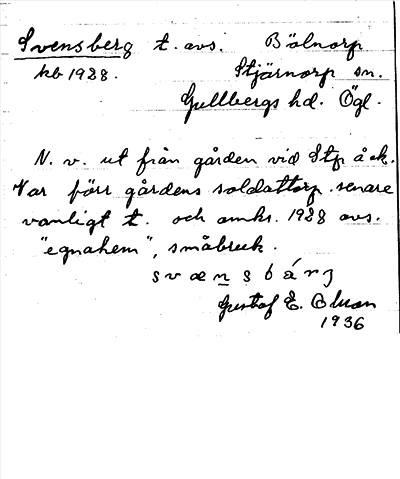 Svensberg t. avs. Bölnorp
kb 1928. Stjärnorp sn.
Gullbergs hd. Ögl.
N. v. ut från gården vid Stp åck.
Var förr gårdens soldattorp. senare
vanligt t. och omkr. 1928 avs.
"egnahem", småbruk.
Gustof E. Olson
1936